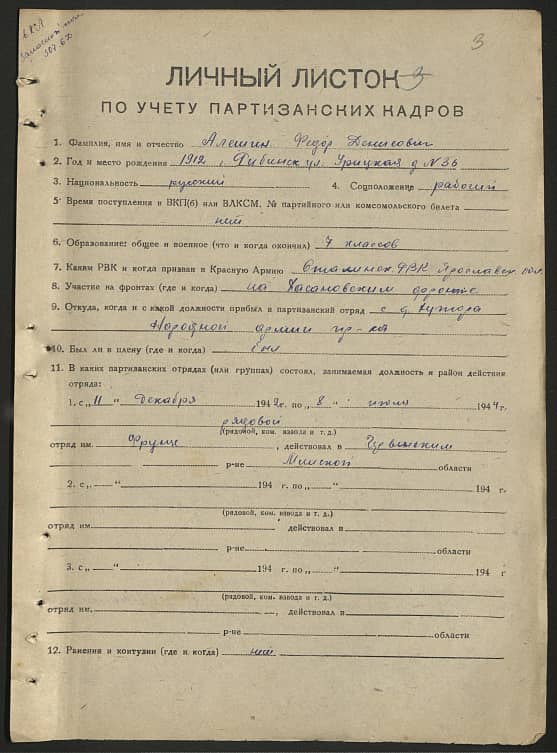 3
ЛИЧНЫЙ ЛИСТОК 3
ПО УЧЕТУ ПАРТИЗАНСКИХ КАДРОВ
1. Фамилия, имя и отчество Алешин Федор Денисович
2. Год и место рождения 1912, Рыбинск ул. Урицкая д N 36
3. Национальность русский 4. Соцположение рабочий
5 Время поступления в ВКП(б) или ВЛКСМ, № партийного или комсомольского билета
нет
6. Образование: общее и военное (что и когда окончил) 7 классов
7. Каким РВК и когда призван в Красную Армию Сталинск. РВК Ярославск.
8. Участие на фронтах (где и когда) на Хасановским фронте
9. Откуда, когда и с какой должности прибыл в партизанский отряд с
Народной армии
10. Был ли в плену (где и когда) был
11. В каких партизанских отрядах (или группах) состоял, занимаемая должность и район действия
отряда:
1. с „11 " Декабря 1942г. по „ 8 " июля 1944г.
рядовой
(рядовой, ком. взвода и т. д.)
отряд им. Фрунзе, действовал в
р-не Минской области
2. с „ " 194 г. по „ " 194 г.
(рядовой, ком. взвода и т. д.)
отряд им. действовал в
р-не области
3. с „ " 194 г. по „ " 194 г
(рядовой, ком. взвода и т. д.)
отряд им. , действовал в
р-не области
12. Ранения и контузии (где и когда) нет